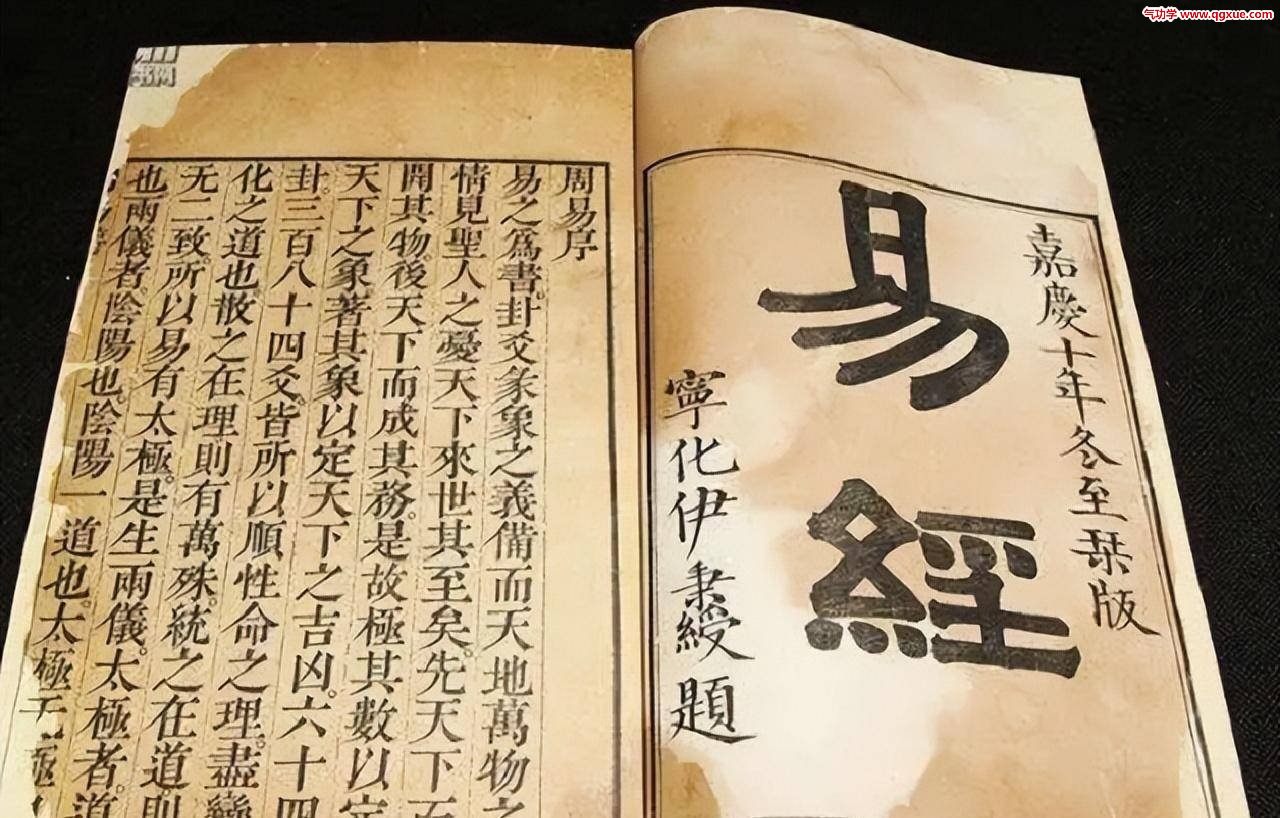 气功学 www.qgxue.com
嘉慶十年冬至栞版
易經
寧化伊秉綬題
周易序
易之爲書卦爻彖象之義備而天地萬物之
情見聖人之憂天下來世其至矣先天下而
開其物後天下而成其務是故極其數以定
天下之象著其象以定天下之吉凶六十四
卦三百八十四爻皆所以順性命之理盡變
化之道也散之在理則有萬殊統之在道則
无二致所以易有太極是生兩儀太極者道
也兩儀者陰陽也陰陽一道也太極无極